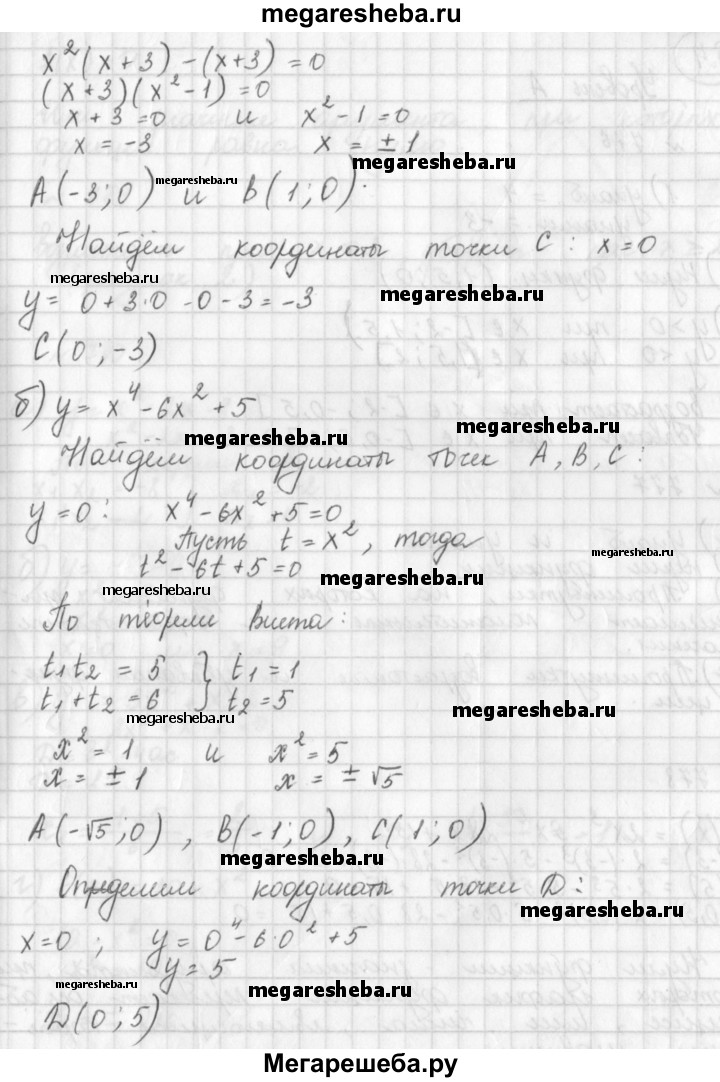 megaresheba.ru
x²(x+3) - (x+3) = 0
(x+3)(x²-1) = 0
x+3=0 и x²-1=0
x = -3 x = ±1
megaresheba.ru
A(-3;0) megaresheba.ru и B(1;0).
Найдём координаты точки C: x=0
megaresheba.ru
y = 0+3·0-0-3=-3 megaresheba.ru
C(0;-3)
б) y = x⁴-6x²+5
megaresheba.ru megaresheba.ru
Найдём координаты точек A, B, C:
y=0: x⁴-6x²+5=0
Пусть t = x², тогда
megaresheba.ru
t²-6t+5=0 megaresheba.ru
megaresheba.ru
По теореме Виета:
t₁t₂ = 5 } t₁ = 1
t₁+t₂ = 6 } t₂ = 5
megaresheba.ru megaresheba.ru
x² = 1 и x² = 5
x = ±1 x = ±√5
A(-√5;0), B(-1;0), C(1;0)
megaresheba.ru
Определим координаты точки D:
megaresheba.ru
x=0; y = 0⁴-6·0²+5
y = 5
megaresheba.ru megaresheba.ru
D(0;5)
Мегарешеба.ру